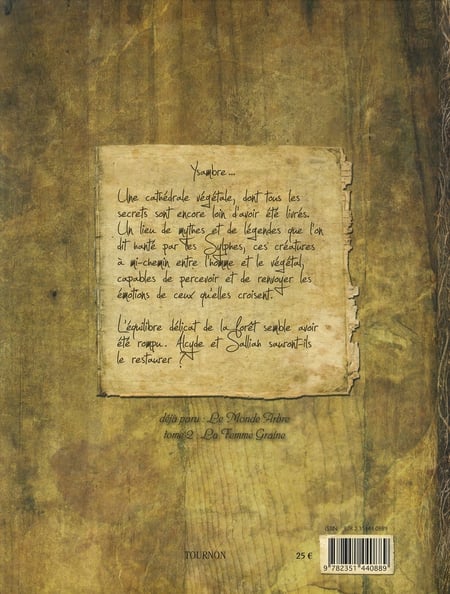 Ysambre...
Une cathédrale végétale, dont tous les
secrets sont encore loin d'avoir été livrés.
Un lieu de mythes et de légendes que l'on
dit hanté par les Sylphes, ces créatures
à mi-chemin entre l'homme et le végétal,
capables de percevoir et de renvoyer les
émotions de ceux qu'elles croisent.
L'équilibre délicat de la forêt semble avoir
été rompu. Alcyde et Salliah sauront-ils
le restaurer ?
déjà paru : Le Monde Arbre
tome 2 : La Femme Graine
ISBN
TOURNON
25 €
9 782351 440889